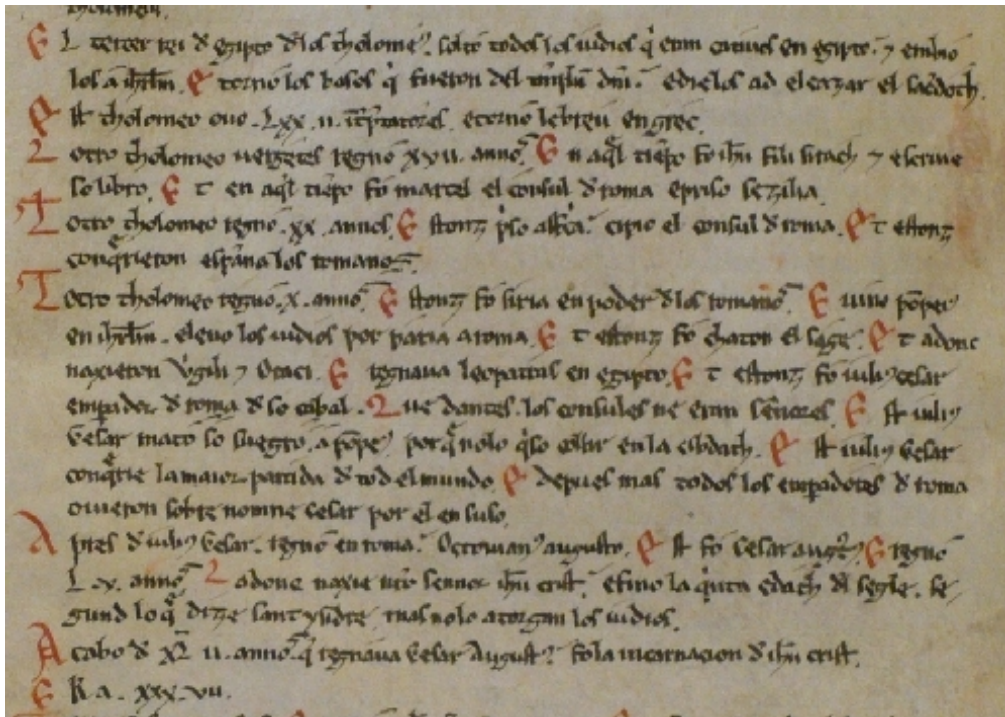 E L tercer rei đ egipto đ los tholome⁹. solto todos los iudios q̇ eran catiuos en egipto. ⁊ embio
los a ihrlm. E torno los basos q̇ fueron del templũ dñi. e dielos ad eleazar el sacdoth.
E st tholomeo ouo .Lxx.ii. e torno lebreu en grec.
L otro tholomeo uergetes regno xxvii. annõs. E n aq̃l tiẽpo fo ihũ fili sirach ⁊ escriue
so libro. E t en aq̃l tiẽpo fo marcel el consul đ roma e priso sezilia.
L otro tholomeo regno .xx. annos. E stonz p̃so cipio el consul đ roma. E t estonz
conq̃rieron españa los romanos.
L otro tholomeo regno .x. annõs. E stonz fo siria en poder đ los romanõs. E uino põpe⁹
en ihrlm. e leuo los iudios por paria a roma. E t estonz fo chaton el sage. E t adonc
naxieron Virgili ⁊ Oraci. E regnaua leopatras en egipto. E t estonz fo iuli⁹ cesar
empador đ roma đ so cabal. Que dantes los consules ne eran sẽnores. E st iuli⁹
cesar mato so suegro a põpe⁹ porq̃ nolo q̇so coller en la cibdath. E st iuli⁹ cesar
conq̃rie la maior partida đ tod el mundo. E depues mas todos los empadores đ roma
ouieron sobre nomne cesar por el en suso.
A pres đ iuli⁹ cesar. regno en roma. Octouian⁹ augusto. E st fo cesar E regno
L.v. annõs. E adonc naxie nr̃o sennor ihũ crist. e fino la q̇nta edath đl segle. se-
gund lo q̃ dize sant ysidre. mas nolo atorgan los iudios.
A cabo đ xL ii. annõs q̇ regnaua cesar August⁹. fo la incarnacion đ ihũ crist.
E R a. xxx.vii.